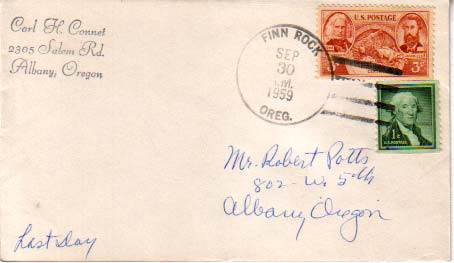 Carl H. Connet
2305 Salem Rd.
Albany, Oregon
FINN ROCK
SEP
30
M.
1959
OREG.
U.S. POSTAGE
3¢
1¢
U.S. POSTAGE
Mr. Robert Potts
802 - W. 5th
Albany, Oregon
Last Day